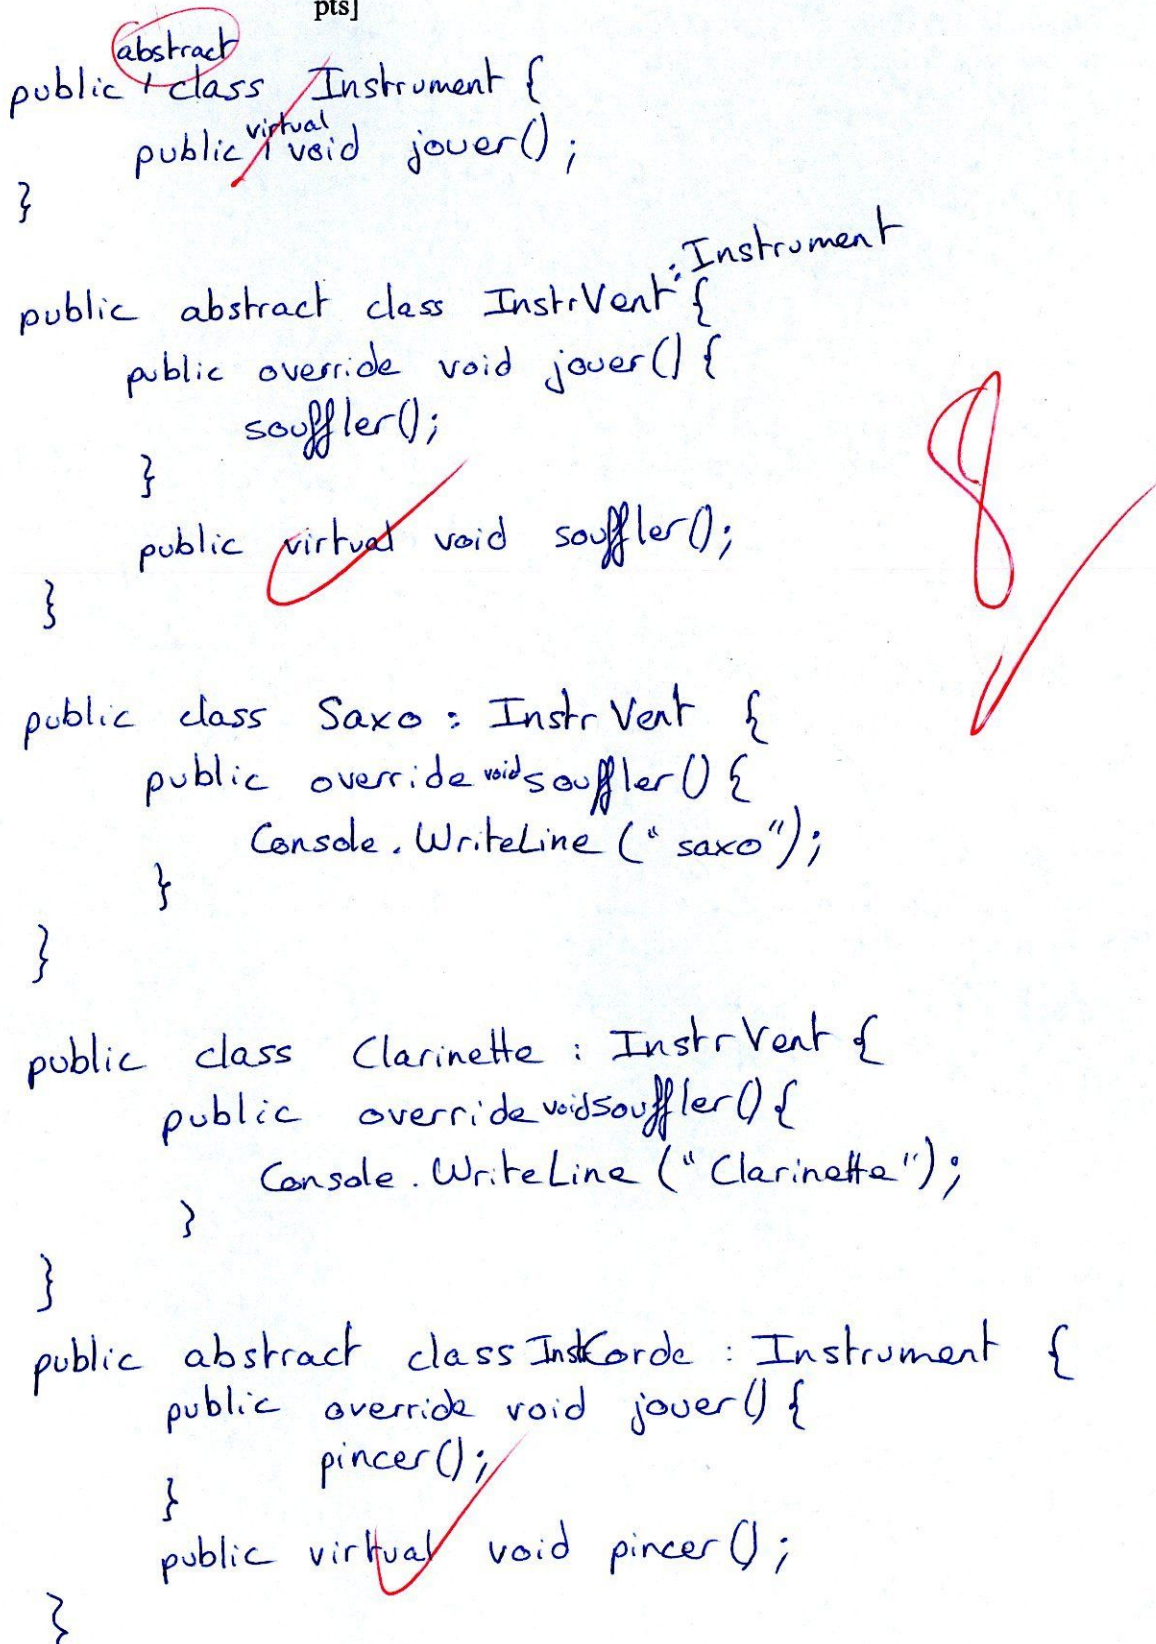 pts]
public abstract class Instrument {
public virtual void jouer();
}
public abstract class InstrVent : Instrument {
public override void jouer() {
souffler();
}
public virtual void souffler();
}
public class Saxo : InstrVent {
public override void souffler() {
Console.WriteLine ("saxo");
}
}
public class Clarinette : InstrVent {
public override void souffler() {
Console.WriteLine ("Clarinette");
}
}
public abstract class InstCorde : Instrument {
public override void jouer() {
pincer();
}
public virtual void pincer();
}
8